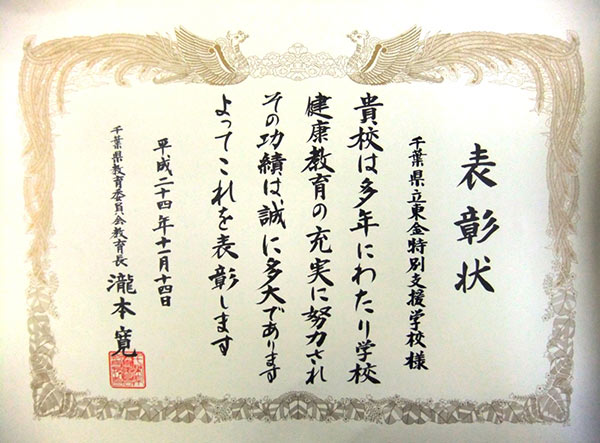 表彰状
千葉県立東金特別支援学校様
貴校は多年にわたり学校
健康教育の充実に努力され
その功績は、誠に多大であります
よってこれを表彰します
平成二十四年十一月十四日
千葉県教育委員会教育長
瀧本寛